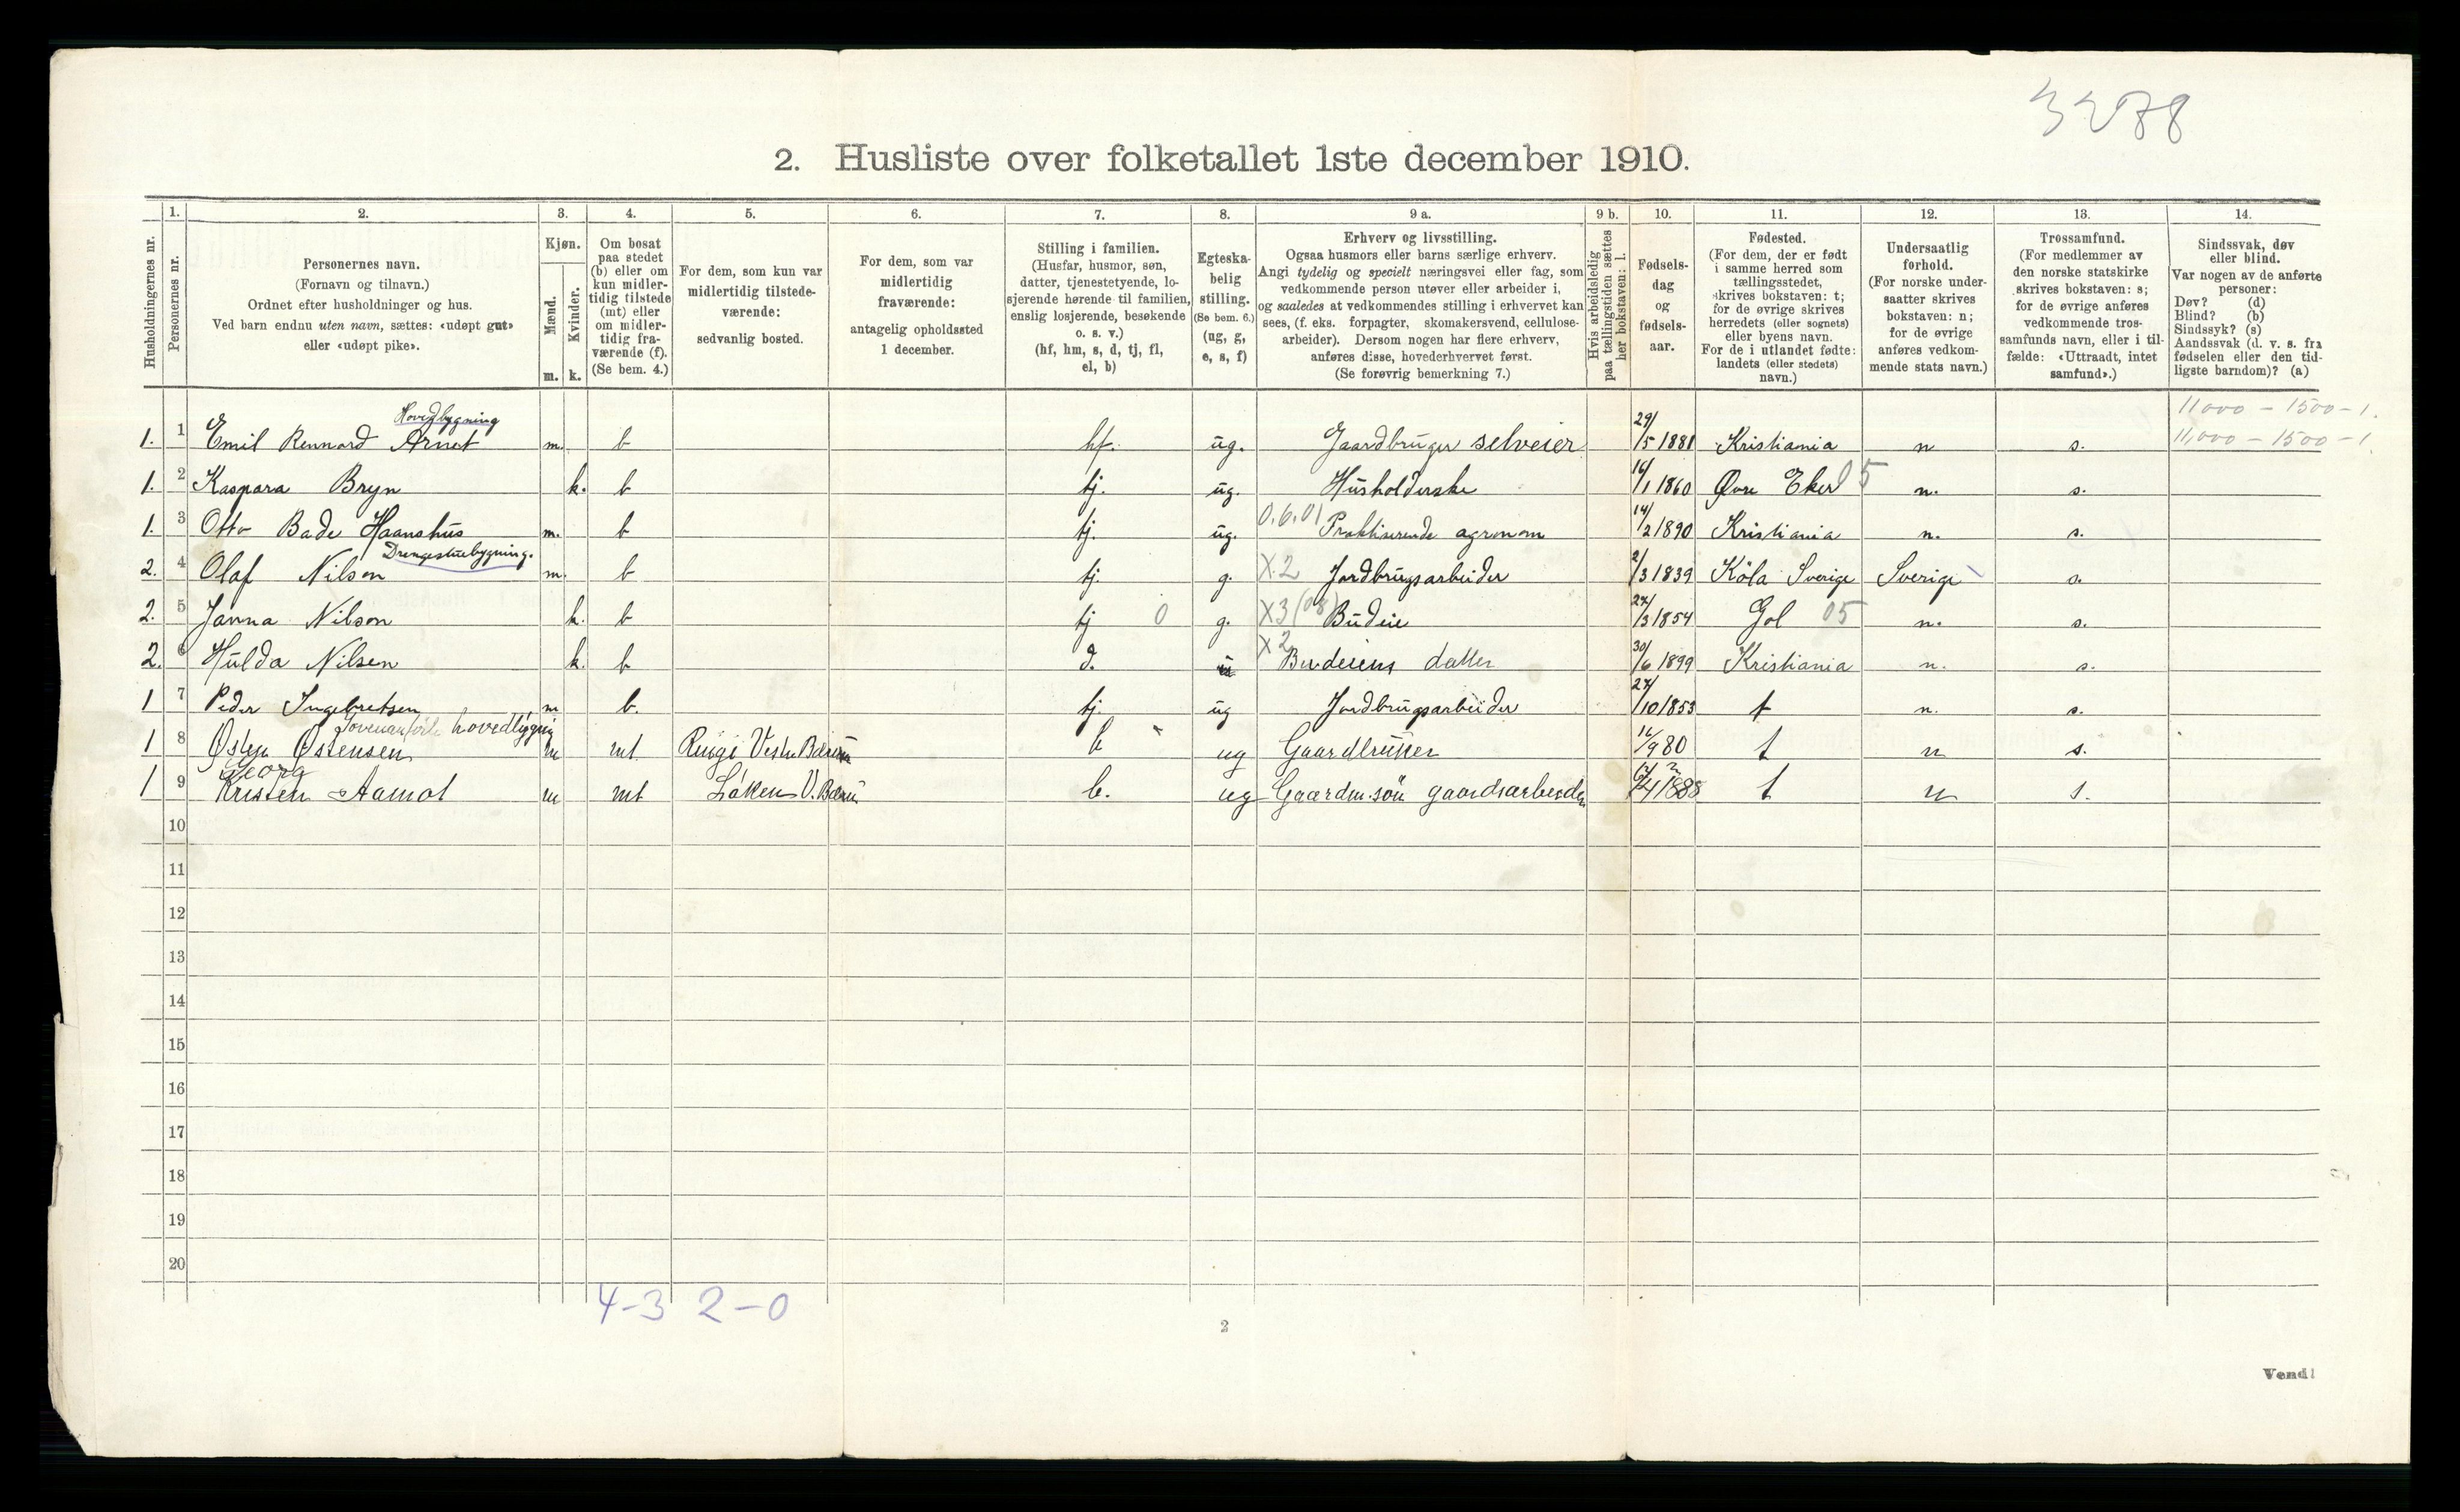 3288
2. Husliste over folketallet 1ste december 1910.
1. 2. 3. 4. 5. 6. 7. 8. 9 a. 9 b. 10. 11. 12. 13. 14.
Husholdningernes nr.
Personernes nr.
Personernes navn.
(Fornavn og tilnavn.)
Ordnet efter husholdninger og hus.
Ved barn endnu uten navn, sættes: «udøpt gut»
eller «udøpt pike».
Kjøn.
Mænd.
Kvinder.
m. k.
Om bosat
paa stedet
(b) eller om
kun midler-
tidig tilstede
(mt) eller
om midler-
tidig fra-
værende (f).
(Se bem. 4.)
For dem, som kun var
midlertidig tilstede-
værende:
sedvanlig bosted.
For dem, som var
midlertidig
fraværende:
antagelig opholdssted
1 december.
Stilling i familien.
(Husfar, husmor, søn,
datter, tjenestetyende, lo-
sjerende hørende til familien,
enslig losjerende, besøkende
o. s. v.)
(hf, hm, s, d, tj, fl,
el, b)
Egteska-
belig
stilling.
(Se bem. 6.)
(ug, g,
e, s, f)
Erhverv og livsstilling.
Ogsaa husmors eller barns særlige erhverv.
Angi tydelig og specielt næringsvei eller fag, som
vedkommende person utøver eller arbeider i,
og saaledes at vedkommendes stilling i erhvervet kan
sees, (f. eks. forpagter, skomakersvend, cellulose-
arbeider). Dersom nogen har flere erhverv,
anføres disse, hovederhvervet først.
(Se forøvrig bemerkning 7.)
Hvis arbeidsledig
paa tællingstiden sættes
her bokstaven: l.
Fødsels-
dag
og
fødsels-
aar.
Fødested.
(For dem, der er født
i samme herred som
tællingsstedet,
skrives bokstaven: t;
for de øvrige skrives
herredets (eller sognets)
eller byens navn.
For de i utlandet fødte:
landets (eller stedets)
navn.)
Undersaatlig
forhold.
(For norske under-
saatter skrives
bokstaven: n;
for de øvrige
anføres vedkom-
mende stats navn.)
Trossamfund.
(For medlemmer av
den norske statskirke
skrives bokstaven: s;
for de øvrige anføres
vedkommende tros-
samfunds navn, eller i til-
fælde: «Uttraadt, intet
samfund».)
Sindssvak, døv
eller blind.
Var nogen av de anførte
personer:
Døv? (d)
Blind? (b)
Sindssyk? (s)
Aandssvak (d. v. s. fra
fødselen eller den tid-
ligste barndom)? (a)
Hovedbygning
11000 - 1500 - 1.
1. 1 Emil Rennord Arnet m. b hf. ug. Gaardbruger selveier 29/5 1881 Kristiania n s. 11,000 - 1500 - 1
1. 2 Kaspara Bryn k. b tj. ug. Husholderske 16/1 1860 Øvre Eker 05 n. s.
1. 3 Otto Bade Haanshus m. b tj. ug. 0.6.01 Praktiserende agronom 14/2 1890 Kristiania n. s.
Drengestuebygning.
2. 4 Olaf Nilson m. b tj. g. X.2 Jordbrugsarbeider 2/3 1839 Köla Sverige Sverige s.
2. 5 Janna Nilson k. b tj 0 g. X3 (08) Budeie 27/3 1854 Gol 05 n. s.
2. 6 Hulda Nilsen k. b d. X2 Budeiens datter 30/6 1899 Kristiania n. s.
1 7 Peder Ingebretsen m b. tj. ug Jordbrugsarbeider 27/10 1853 t n. s.
hovedbygning
1 8 Østen Østensen m mt Ringi Vestre Bærum b ug Gaardbruker 16/9 80 t n s.
Georg
1 9 Kristen Aamot m mt Løken V. Bærum b. ug Gaardm. søn gaardsarbeider 4 1888 t n s.
10
11
12
13
14
15
16
17
18
19
20
4-3 2-0
2
Vend!